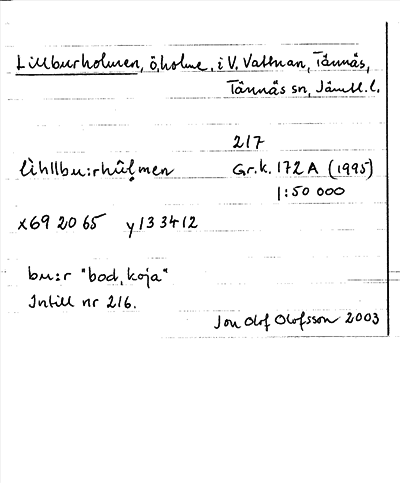 Lillburholmen, ö, holme, i V. Vattnan, Tännäs,
Tännäs sn, Jämtl. l.
217
lìhllbu:rhûļmen Gr.k. 172 A (1995)
1:50 000
x69 20 65 y 13 34 12
bu:r "bod, koja"
Intill nr 216.
Jon Olof Olofsson 2003